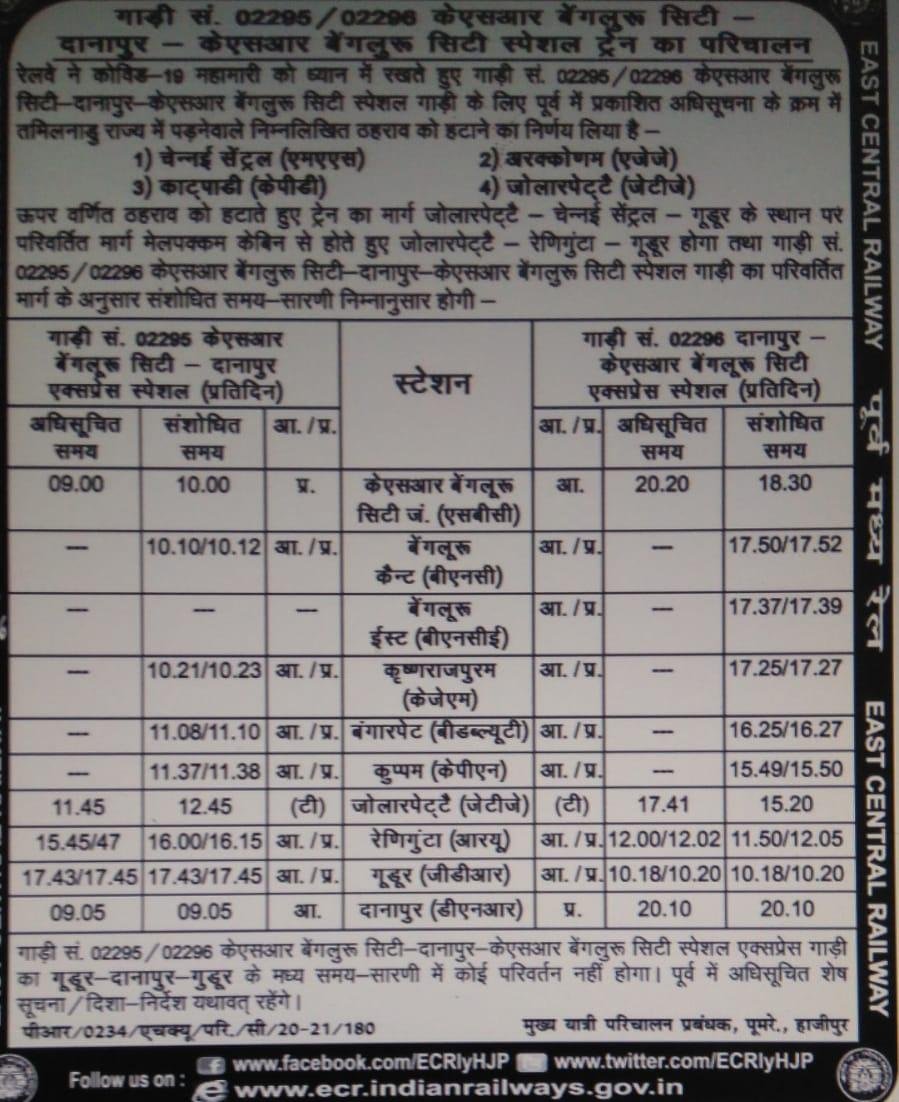 गाड़ी सं. 02295/02296 केएसआर बेंगलुरू सिटी –
दानापुर – केएसआर बेंगलुरू सिटी स्पेशल ट्रेन का परिचालन
रेलवे ने कोविड–19 महामारी को ध्यान में रखते हुए गाड़ी सं. 02295/02296 केएसआर बेंगलुरू
सिटी–दानापुर–केएसआर बेंगलुरू सिटी स्पेशल गाड़ी के लिए पूर्व में प्रकाशित अधिसूचना के क्रम में
तमिलनाडु राज्य में पड़नेवाले निम्नलिखित ठहराव को हटाने का निर्णय लिया है –
1) चेन्नई सेंट्रल (एमएएस) 2) अरक्कोणम (एजेजे)
3) काट्पाडी (केपीडी) 4) जोलारपेट्टै (जेटीजे)
ऊपर वर्णित ठहराव को हटाते हुए ट्रेन का मार्ग जोलारपेट्टै – चेन्नई सेंट्रल – गूडूर के स्थान पर
परिवर्तित मार्ग मेलपक्कम केबिन से होते हुए जोलारपेट्टै – रेणिगुंटा – गूडूर होगा तथा गाड़ी सं.
02295/02296 केएसआर बेंगलुरू सिटी–दानापुर–केएसआर बेंगलुरू सिटी स्पेशल गाड़ी का परिवर्तित
मार्ग के अनुसार संशोधित समय–सारणी निम्नानुसार होगी –
गाड़ी सं. 02295 केएसआर
बेंगलुरू सिटी – दानापुर
एक्सप्रेस स्पेशल (प्रतिदिन)
स्टेशन
गाड़ी सं. 02296 दानापुर –
केएसआर बेंगलुरू सिटी
एक्सप्रेस स्पेशल (प्रतिदिन)
अधिसूचित समय संशोधित समय आ./प्र. आ./प्र. अधिसूचित समय संशोधित समय
09.00 10.00 प्र. केएसआर बेंगलूरू सिटी जं. (एसबीसी) आ. 20.20 18.30
— 10.10/10.12 आ./प्र. बेंगलूरू कैन्ट (बीएनसी) आ./प्र. — 17.50/17.52
— — — बेंगलूरू ईस्ट (बीएनसीई) आ./प्र. — 17.37/17.39
— 10.21/10.23 आ./प्र. कृष्णराजपुरम (केजेएम) आ./प्र. — 17.25/17.27
— 11.08/11.10 आ./प्र. बंगारपेट (बीडब्ल्यूटी) आ./प्र. — 16.25/16.27
— 11.37/11.38 आ./प्र. कुप्पम (केपीएन) आ./प्र. — 15.49/15.50
11.45 12.45 (टी) जोलारपेट्टै (जेटीजे) (टी) 17.41 15.20
15.45/47 16.00/16.15 आ./प्र. रेणिगुंटा (आरयू) आ./प्र. 12.00/12.02 11.50/12.05
17.43/17.45 17.43/17.45 आ./प्र. गूडूर (जीडीआर) आ./प्र. 10.18/10.20 10.18/10.20
09.05 09.05 आ. दानापुर (डीएनआर) प्र. 20.10 20.10
गाड़ी सं. 02295/02296 केएसआर बेंगलुरू सिटी–दानापुर–केएसआर बेंगलुरू सिटी स्पेशल एक्सप्रेस गाड़ी
का गूडूर–दानापुर–गुडूर के मध्य समय–सारणी में कोई परिवर्तन नहीं होगा। पूर्व में अधिसूचित शेष
सूचना/दिशा–निर्देश यथावत् रहेंगे।
पीआर/0234/एचक्यू/परि./सी/20-21/180 मुख्य यात्री परिचालन प्रबंधक, पूमरे., हाजीपुर
Follow us on : www.facebook.com/ECRlyHJP www.twitter.com/ECRlyHJP
www.ecr.indianrailways.gov.in
EAST CENTRAL RAILWAY पूर्व मध्य रेल EAST CENTRAL RAILWAY